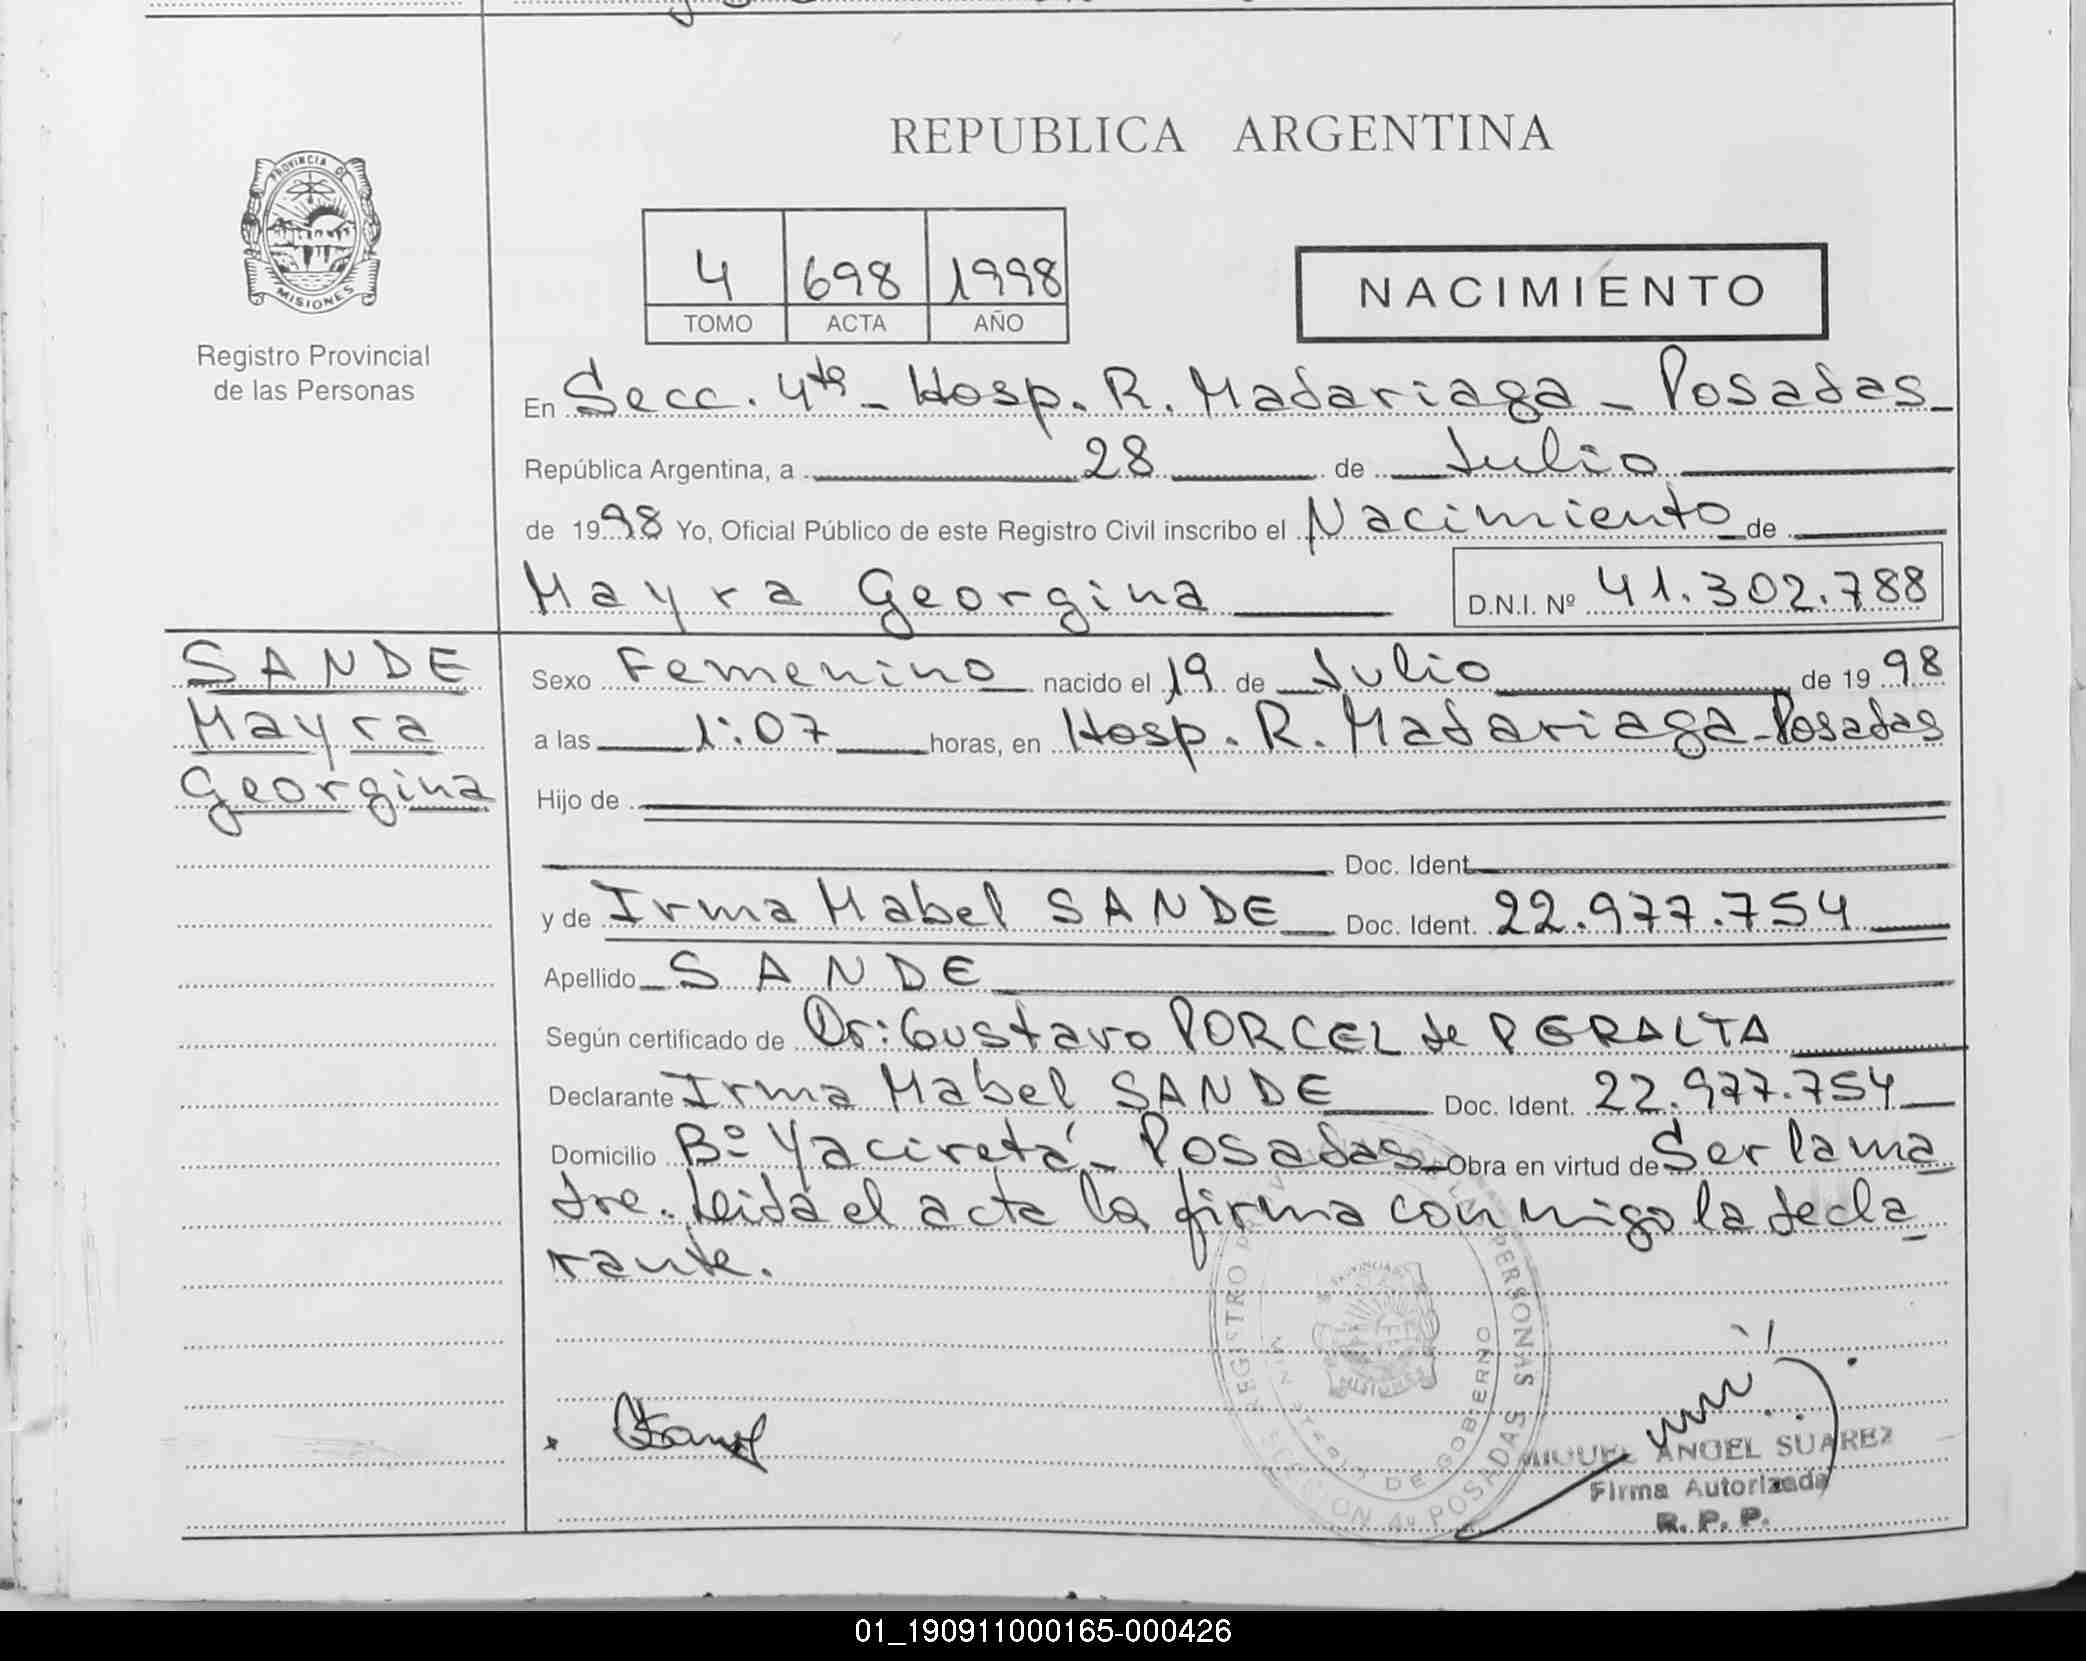 REPUBLICA ARGENTINA
PROVINCIA DE
MISIONES
Registro Provincial
de las Personas
4 698 1998
TOMO ACTA AÑO
NACIMIENTO
En Secc. 4ta - Hosp. R. Madariaga - Posadas
República Argentina, a 28 de Julio
de 1998 Yo, Oficial Público de este Registro Civil inscribo el Nacimiento de
Mayra Georgina D.N.I. Nº 41.302.788
SANDE
Mayra
Georgina
Sexo Femenino nacido el 19 de Julio de 1998
a las 1:07 horas, en Hosp. R. Madariaga - Posadas
Hijo de
Doc. Ident.
y de Irma Mabel SANDE Doc. Ident. 22.977.754
Apellido SANDE
Según certificado de Dr: Gustavo PORCEL de PERALTA
Declarante Irma Mabel SANDE Doc. Ident. 22.977.754
Domicilio Bº Yaciretá - Posadas - Obra en virtud de Ser la ma
dre. Leida el acta la firma conmigo la decla
rante.
REGISTRO DE LAS PERSONAS
MINISTERIO DE GOBIERNO
SECCION 4º POSADAS
MIGUEL ANGEL SUAREZ
Firma Autorizada
R. P. P.
01_190911000165-000426